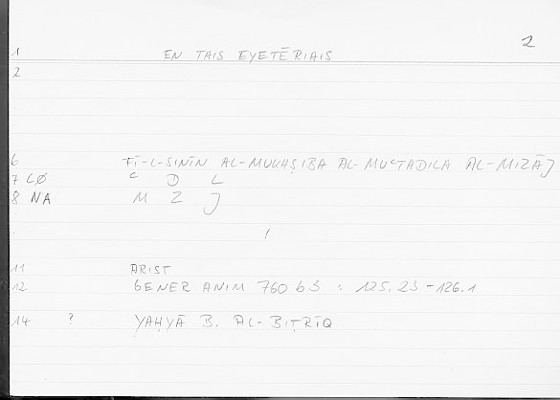 2
1 EN TAIS EYETĒRIAIS
2
6 FĪ-L-SINĪN AL-MUKHṢIBA AL-MUʿTADILA AL-MIZĀJ
7 LØ ʿ D L
8 NA M Z J
11 ARIST
12 GENER ANIM 760 b3 : 125.23-126.1
14 ? YAḤYĀ B. AL-BIṬRĪQ